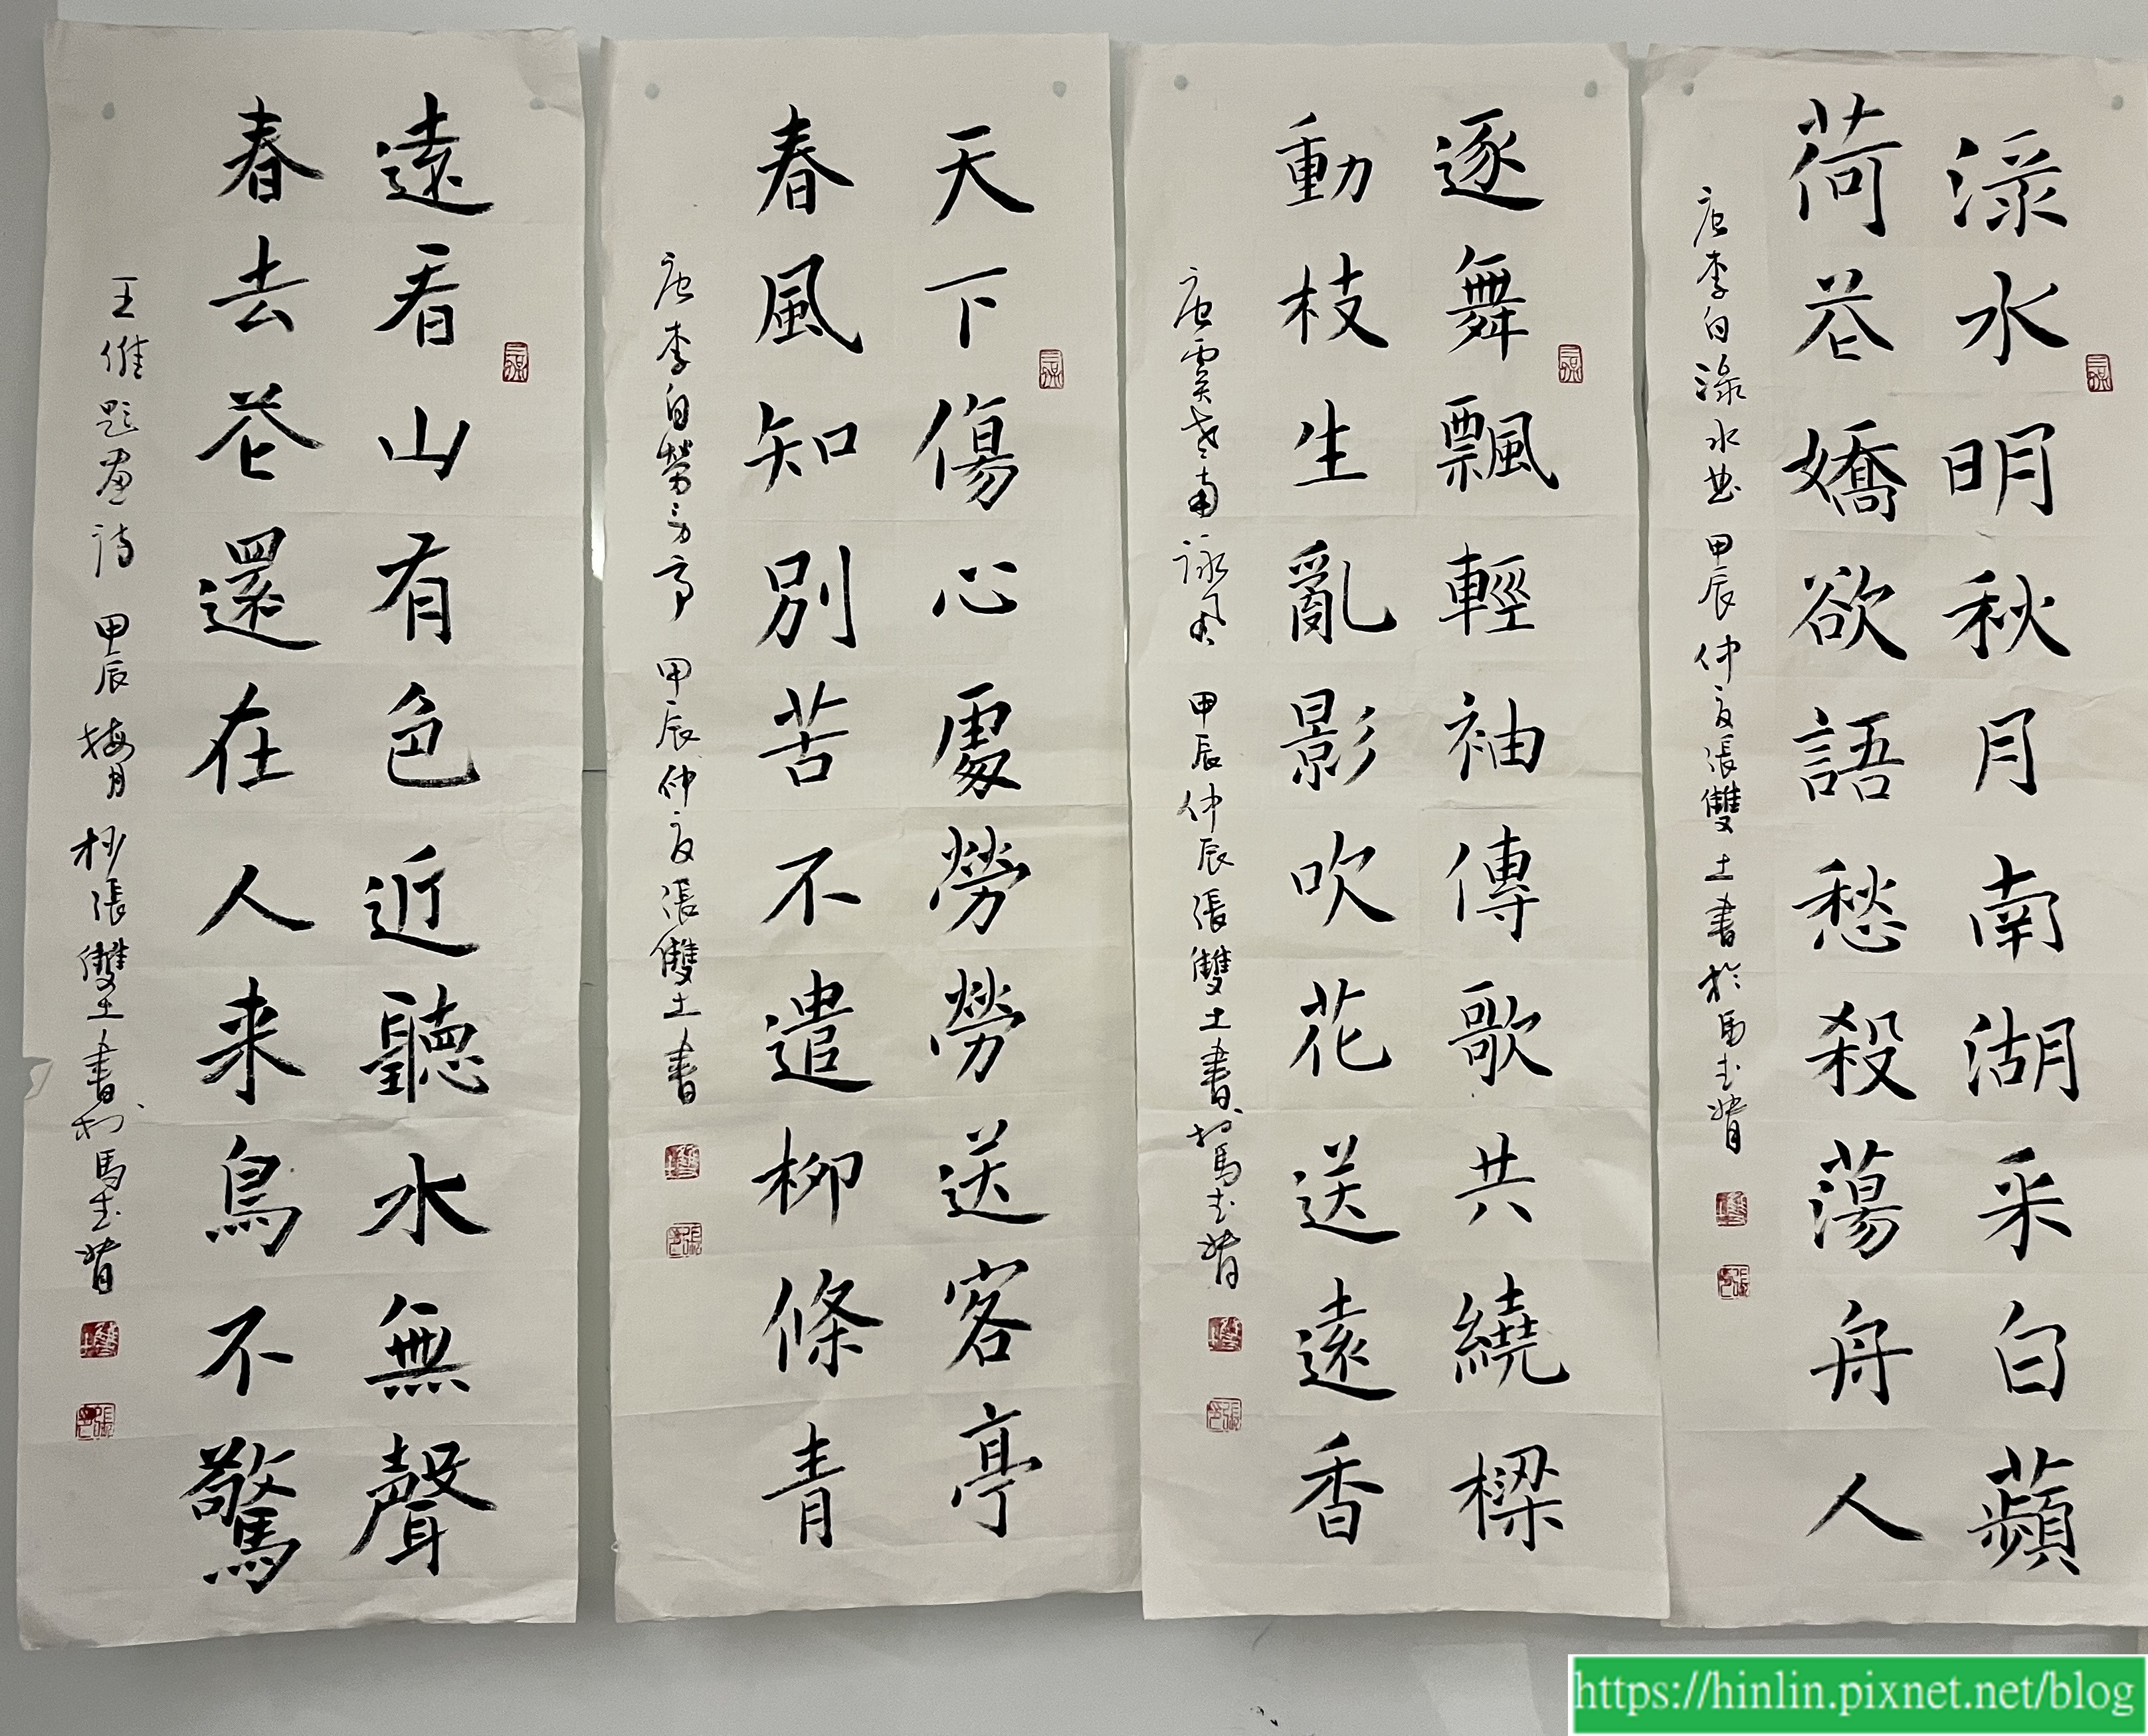 淥水明秋月南湖采白蘋
荷花嬌欲語愁殺蕩舟人
唐李白淥水曲 甲辰仲夏張雙土書於馬
逐舞飄輕袖傳歌共繞樑
動枝生亂影吹花送遠香
唐虞世南詠風 甲辰仲辰張雙土書 馬
天下傷心處勞勞送客亭
春風知別苦不遣柳條青
唐李白勞勞亭 甲辰仲夏張雙土書
遠看山有色近聽水無聲
春去花還在人来鳥不驚
王維題畫詩 甲辰梅月 杪張雙土書於馬
https://hinlin.pixnet.net/blog